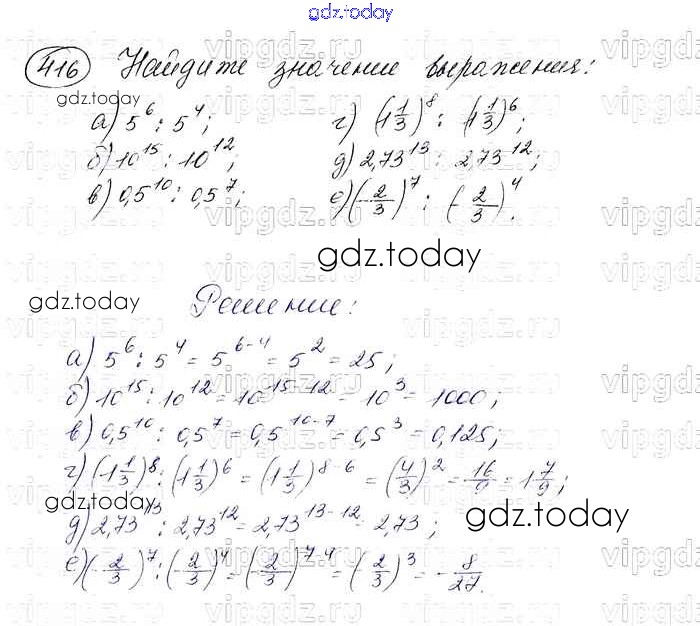 gdz.today
416 Найдите значение выражения:
gdz.today
а) 5^6 : 5^4;
б) 10^15 : 10^12;
в) 0,5^10 : 0,5^7;
г) (1 1/3)^8 : (1 1/3)^6;
д) 2,73^13 : 2,73^12;
е) (-2/3)^7 : (-2/3)^4.
gdz.today
gdz.today
Решение:
а) 5^6 : 5^4 = 5^6-4 = 5^2 = 25;
б) 10^15 : 10^12 = 10^15-12 = 10^3 = 1000;
в) 0,5^10 : 0,5^7 = 0,5^10-7 = 0,5^3 = 0,125;
г) (1 1/3)^8 : (1 1/3)^6 = (1 1/3)^8-6 = (4/3)^2 = 16/9 = 1 7/9;
д) 2,73^13 : 2,73^12 = 2,73^13-12 = 2,73;
gdz.today
е) (-2/3)^7 : (-2/3)^4 = (-2/3)^7-4 = (-2/3)^3 = -8/27.